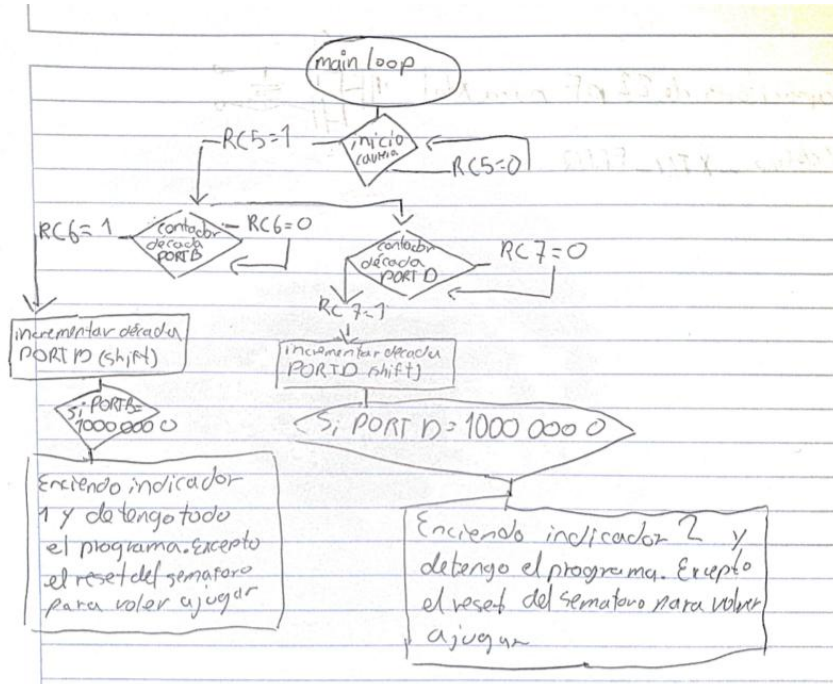 main loop
inicio
RC5=1
RC5=0
contador
década
PORTB
RC6=1
RC6=0
contador
década
PORT D
RC7=0
RC7=1
incrementar década
PORT D (shift)
incrementar década
PORT D (shift)
Si PORTB=
1000 000 0
Si PORT D = 1000 000 0
Enciendo indicador
1 y detengo todo
el programa. Excepto
el reset del semaforo
para volver a jugar
Enciendo indicador 2 y
detengo el programa. Excepto
el reset del semaforo para volver
a jugar